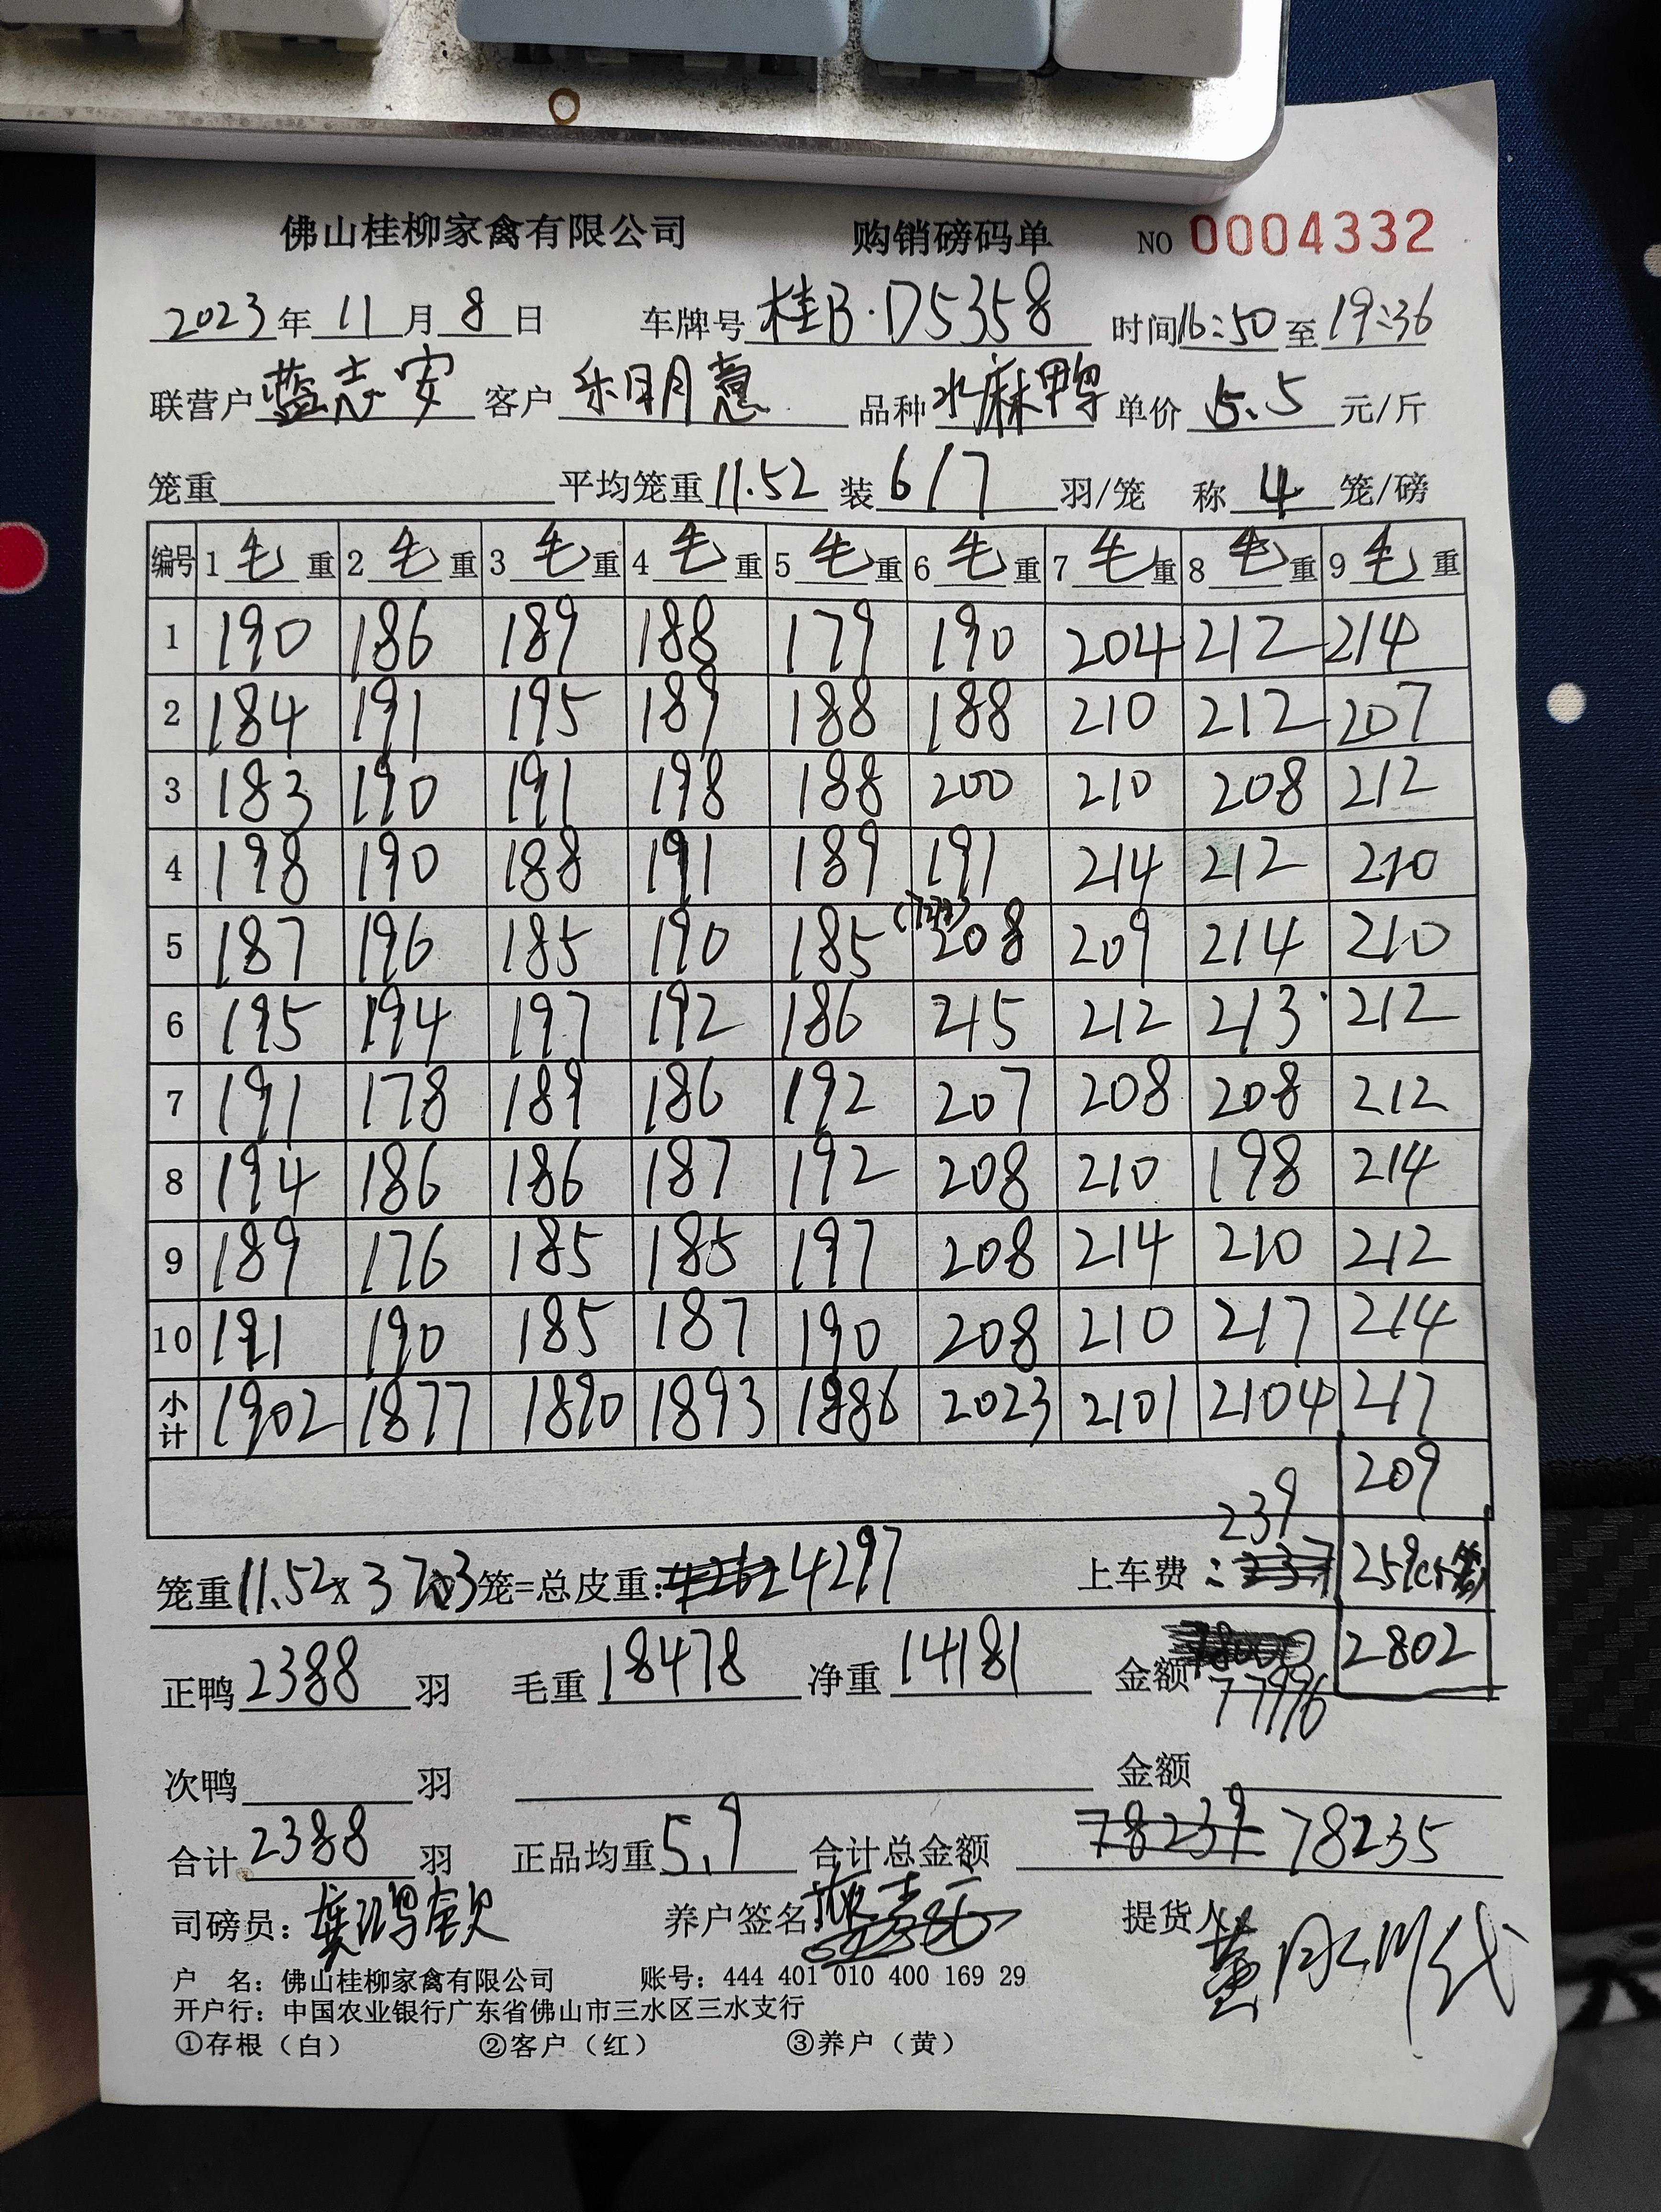 佛山桂柳家禽有限公司 购销磅码单 NO 0004332
2023年11月8日 车牌号桂B·D5358 时间16:50至19:36
联营户蓝志安 客户朱明意 品种水麻鸭 单价5.5元/斤
笼重 平均笼重11.52 装6/7羽/笼 称4笼/磅
编号 1毛重 2毛重 3毛重 4毛重 5毛重 6毛重 7毛重 8毛重 9毛重
1 190 186 189 188 179 190 204 212 214
2 184 191 195 189 188 188 210 212 207
3 183 190 191 198 188 200 210 208 212
4 198 190 188 191 189 191 214 212 210
5 187 196 185 190 185 208 209 214 210
6 195 194 197 192 186 215 212 213 212
7 191 178 189 186 192 207 208 208 212
8 194 186 186 187 192 208 210 198 214
9 189 176 185 185 197 208 214 210 212
10 191 190 185 187 190 208 210 217 214
小计 1902 1877 1890 1893 1886 2023 2101 2104 217
209
239
笼重11.52×373笼=总皮重:4262 4297 上车费:237 259(5笼)
正鸭2388羽 毛重18478 净重14181 金额78000 2802
77996
次鸭 羽 金额
合计2388羽 正品均重5.9 合计总金额 78239 78235
司磅员: 养户签名 提货人 代
户 名:佛山桂柳家禽有限公司 账号:444 401 010 400 169 29
开户行:中国农业银行广东省佛山市三水区三水支行
①存根(白) ②客户(红) ③养户(黄)